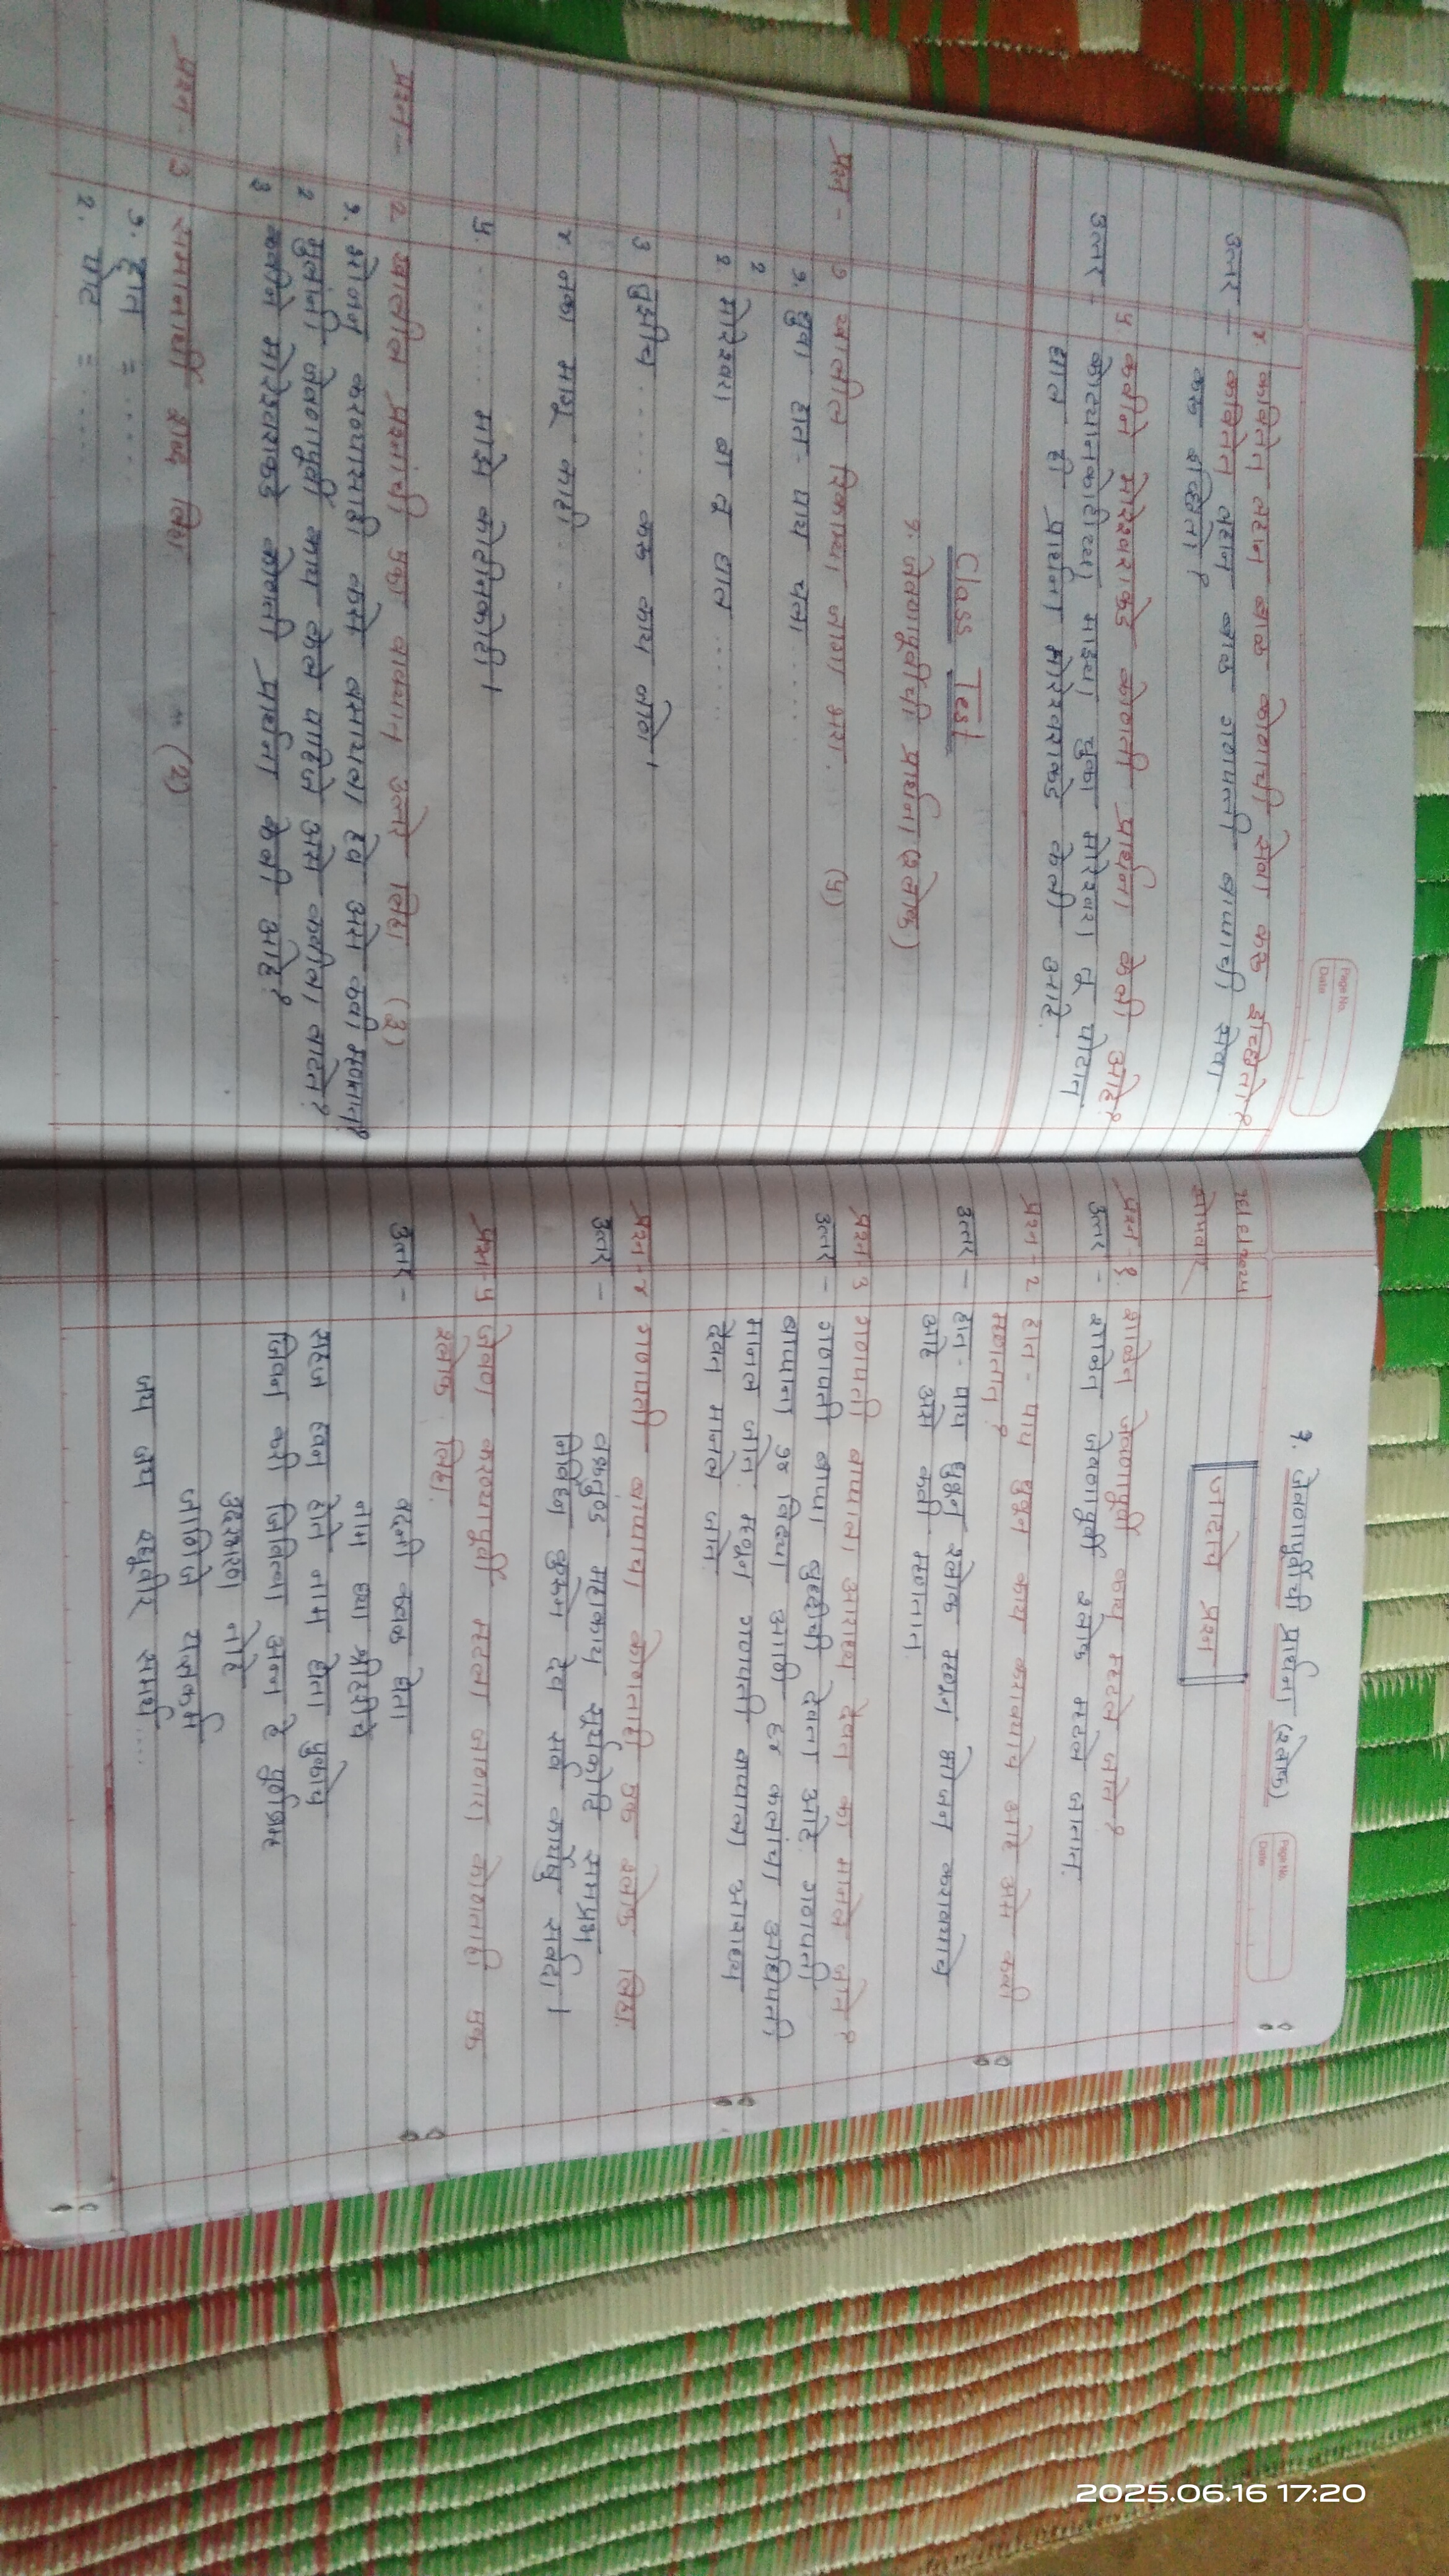 Page No.
Date
४ कवितेत लहान बाळ कोणाची सेवा करू ईच्छितो?
उत्तर – कवितेत लहान बाळ गणपती बाप्पाची सेवा
करू ईच्छितो.
५. कवीने मोरेश्वराकडे कोणती प्रार्थना केली आहे?
उत्तर – कोट्यानकोटी माझ्या चुका मोरेश्वरा तू पोटात
घाल ही प्रार्थना मोरेश्वराकडे केली आहे.
Class Test
१. जेवणापूर्वीची प्रार्थना (श्लोक)
प्रश्न - १ खालील रिकाम्या जागा भरा. (५)
१. धुवा हात-पाय चला ......
२
२. मोरेश्वरा बा तू घाल ......
३. तुझीच ...... करू काय जाणे।
४. नका मागू काही ......
५. ........ माझे कोटीनकोटी।
प्रश्न - २. खालील प्रश्नांची एका वाक्यात उत्तरे लिहा. (३)
१. भोजन करण्यासाठी कसे बसायला हवे असे कवी म्हणतात?
२ मुलांनी जेवणापूर्वी काय केले पाहिजे असे कवीला वाटते?
३. कवीने मोरेश्वराकडे कोणती प्रार्थना केली आहे?
प्रश्न - ३ समानार्थी शब्द लिहा. (२)
१. हात = .....
२. पोट = .....
१. जेवणापूर्वीची प्रार्थना (श्लोक)
Page No.
Date
सोमवार
जादाचे प्रश्न
प्रश्न - १. शाळेत जेवणापूर्वी काय म्हटले जाते?
उत्तर - शाळेत जेवणापूर्वी श्लोक म्हटले जातात.
प्रश्न - २ हात-पाय धुवून काय करावयाचे आहे असे कवी
म्हणतात?
उत्तर – हात-पाय धुवून श्लोक म्हणून भोजन करावयाचे
आहे असे कवी म्हणतात.
प्रश्न ३ गणपती बाप्पाला आराध्य दैवत का मानले जाते?
उत्तर – गणपती बाप्पा बुद्धीची देवता आहे. गणपती
बाप्पाला १४ विद्या आणि ६४ कलांचा अधिपती
मानले जाते. म्हणून गणपती बाप्पाला आराध्य
दैवत मानले जाते.
प्रश्न - ४ गणपती बाप्पाचा कोणताही एक श्लोक लिहा.
उत्तर – वक्रतुण्ड महाकाय सूर्यकोटि समप्रभ
निर्विघ्नं कुरूमे देव सर्व कार्येषु सर्वदा।
प्रश्न - ५ जेवण करण्यापूर्वी म्हटला जाणारा कोणताही एक
श्लोक लिहा.
उत्तर – वदनी कवळ घेता
नाम घ्या श्रीहरीचे
सहज हवन होते नाम घेता फुकाचे
जिवन करी जिवित्वा अन्न हे पूर्णब्रह्म
उदरभरण नोहे
जाणिजे यज्ञकर्म
जय जय रघुवीर समर्थ....
2025.06.16 17:20